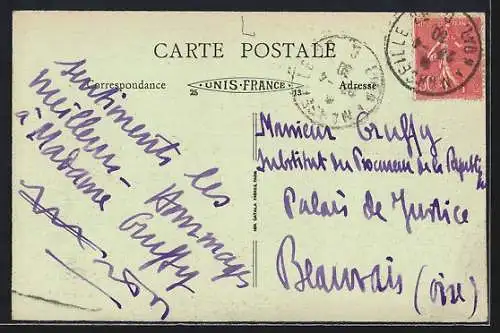 CARTE POSTALE
Correspondance
UNIS-FRANCE
Adresse
25
sentiments les
meilleurs – Hommages
à Madame Gruffy
Monsieur Gruffy
Substitut du Procureur de la République
Palais de Justice
Beauvais (Oise)